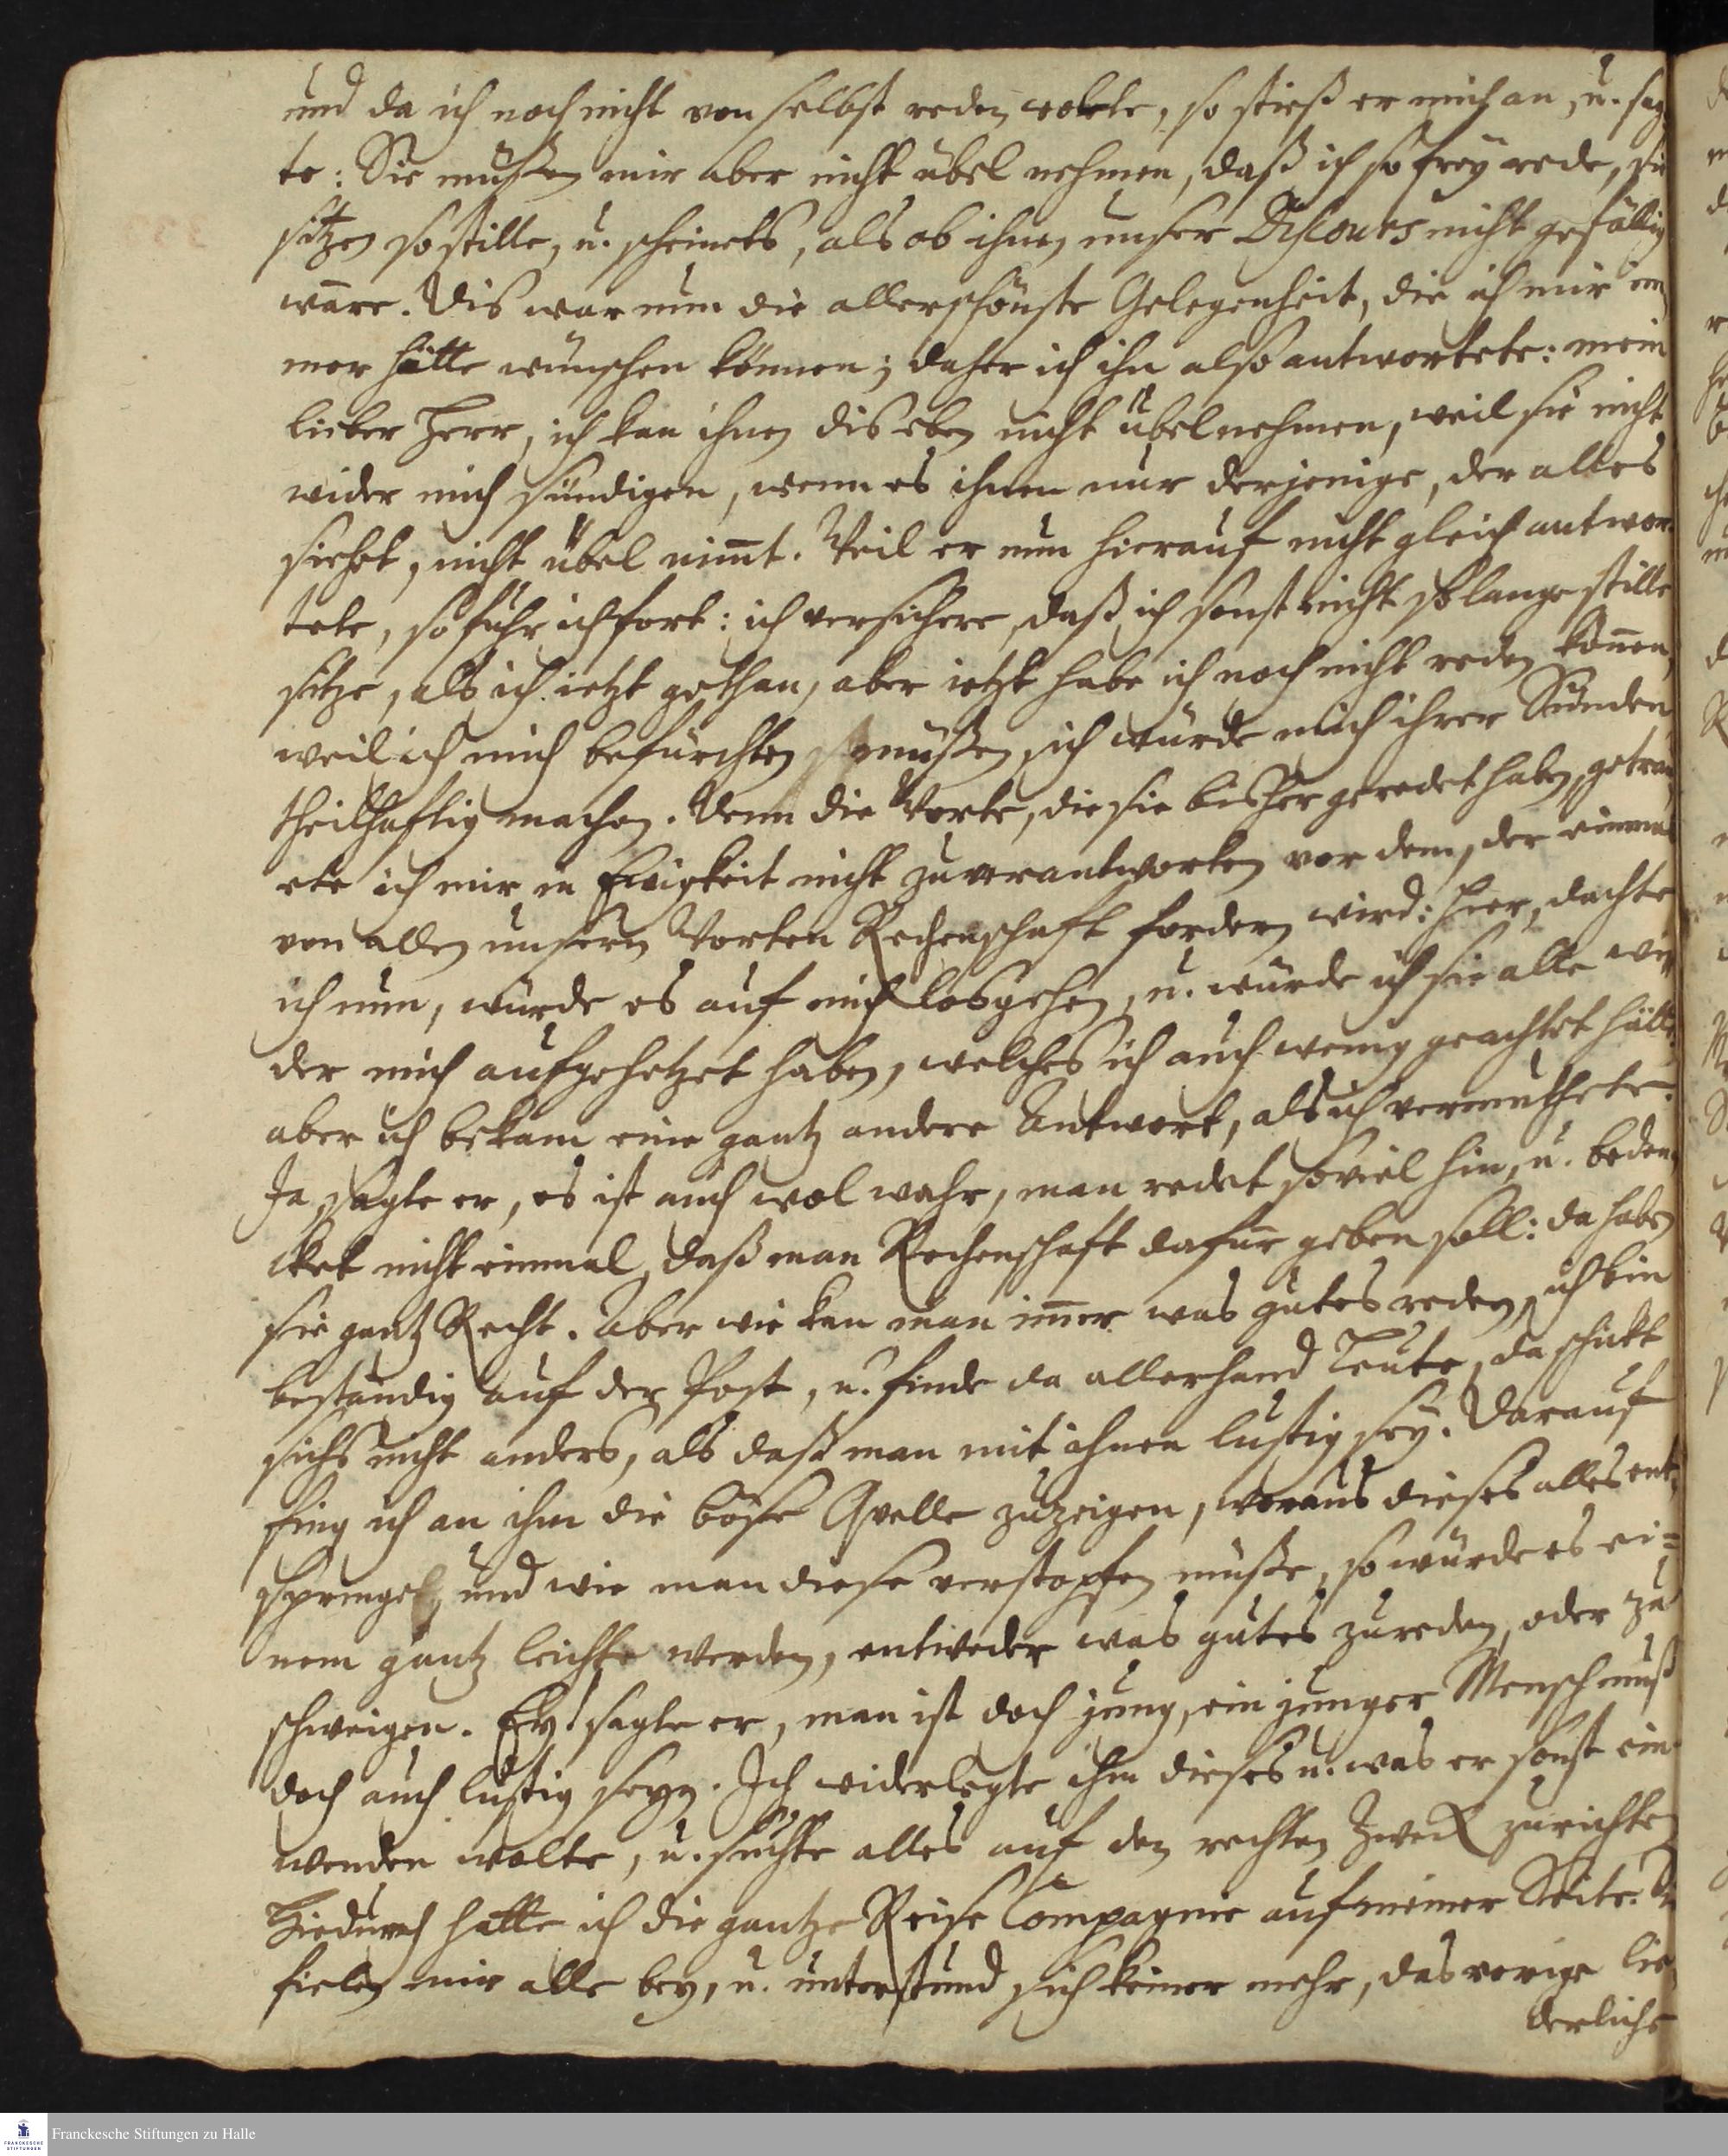 und da ich noch nicht von selbst reden wolte, so stieß er mich an, u. sag
te: Sie müßen mir aber nicht übel nehmen, daß ich so frey rede, sie
sitzen so stille, u. scheinets, als ob ihnen unser Discours nicht gefällig
wäre. Dis war nun die allerschönste Gelegenheit, die ich mir im
mer hätte wünschen können; daher ich ihn also antwortete: mein
lieber Herr, ich kan ihnen dis eben nicht übel nehmen, weil sie nicht
wider mich sündigen, wenn es ihnen nur derjenige, der alles
siehet, nicht übel nim̄t. Weil er nun hierauf nicht gleich antwor
tete, so fuhr ich fort: ich versichere, daß ich sonst nicht so lange stille
sitze, als ich ietzt gethan, aber ietzt habe ich noch nicht reden kön̄en,
weil ich mich befürchten müßen, ich würde mich ihrer Sünden
theilhaftig machen. Denn die Worte, die sie bisher geredet haben, getrau
ete ich mir in Ewigkeit nicht zu verantworten vor dem, der einmal
von allen unsern Worten Rechenschaft fordern wird: hier, dachte
ich nun, würde es auf mich losgehen, u. würde ich sie alle wi
der mich aufgehetzet haben, welches ich auch wenig geachtet hätte,
aber ich bekam eine gantz andere Antwort, als ich vermuthete.
Ja, sagte er, es ist auch wol wahr, man redet so viel hin, u. beden
cket nicht einmal, daß man Rechenschaft dafür geben soll: da haben
sie gantz Recht. Aber wie kan man im̄er was gutes reden, ich bin
beständig auf der Post, u. finde da allerhand Leute, da schickt
sichs nicht anders, als daß man mit ihnen lustig sey. Darauf
fing ich an ihm die böse Quelle zu zeigen, woraus dieses alles ent
springe, und wie man diese verstopfen müße, so würde es ei=
nem gantz leichte werden, entweder was gutes zu reden, oder zu
schweigen. Ey! sagte er, man ist doch jung, ein junger Mensch muß
doch auch lustig seyn. Ich widerlegte ihm dieses u. was er sonst ein
wenden wolte, u. suchte alles auf den rechten Zweck zu richten
Hiedurch hatte ich die gantze Reise Compagnie auf meiner Seite. Sie
fielen mir alle bey, u. unterstund sich keiner mehr, das vorige lie
derliche
Franckesche Stiftungen zu Halle